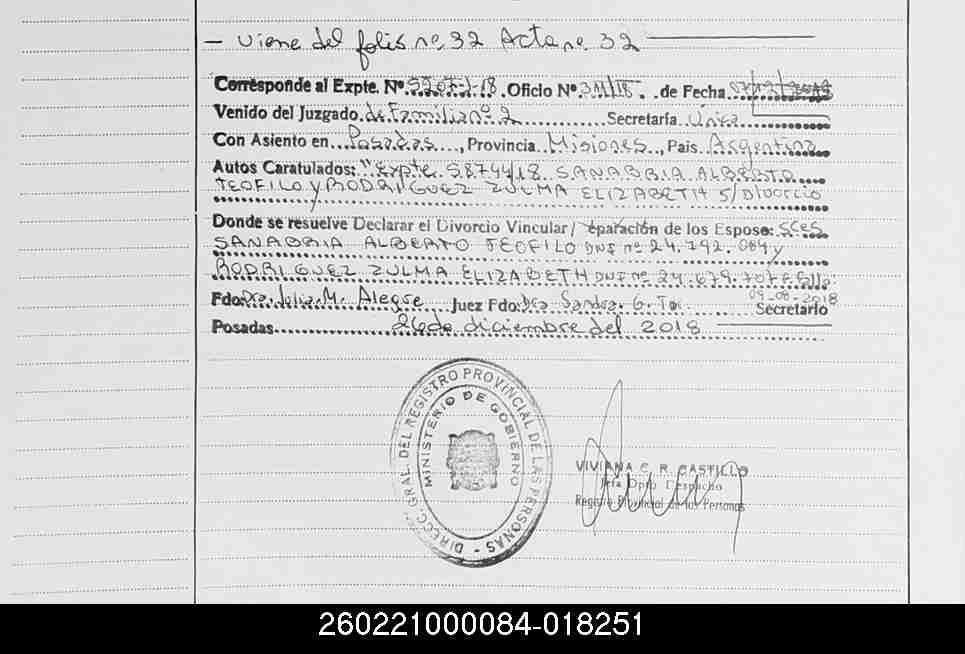 — Viene del folio nº 32 Acta nº 32 —
Corresponde al Expte. Nº 5207/2/18. Oficio Nº 311/18. de Fecha 07/12/2018
Venido del Juzgado de Familia nº 2 Secretaría Única
Con Asiento en Posadas, Provincia Misiones, País Argentina
Autos Caratulados: "Expte. 58744/18 SANABRIA ALBERTO
TEOFILO y RODRIGUEZ ZULMA ELIZABETH S/Divorcio
Donde se resuelve Declarar el Divorcio Vincular/ eparación de los Esposo: SCES
SANABRIA ALBERTO TEOFILO DNI nº 24.792.084 y
RODRIGUEZ ZULMA ELIZABETH DNI nº 24.679.707 Fallo:
09-08-2018
Fdo: Dra. Julia M. Alegre Juez Fdo: Dra Sandra. G. Secretario
Posadas 26 de diciembre del 2018
DIRECC. GRAL. DEL REGISTRO PROVINCIAL DE LAS PERSONAS
MINISTERIO DE GOBIERNO
VIVIANA C. R. CASTILLO
Jefa Dpto Despacho
Registro Provincial de las Personas
260221000084-018251